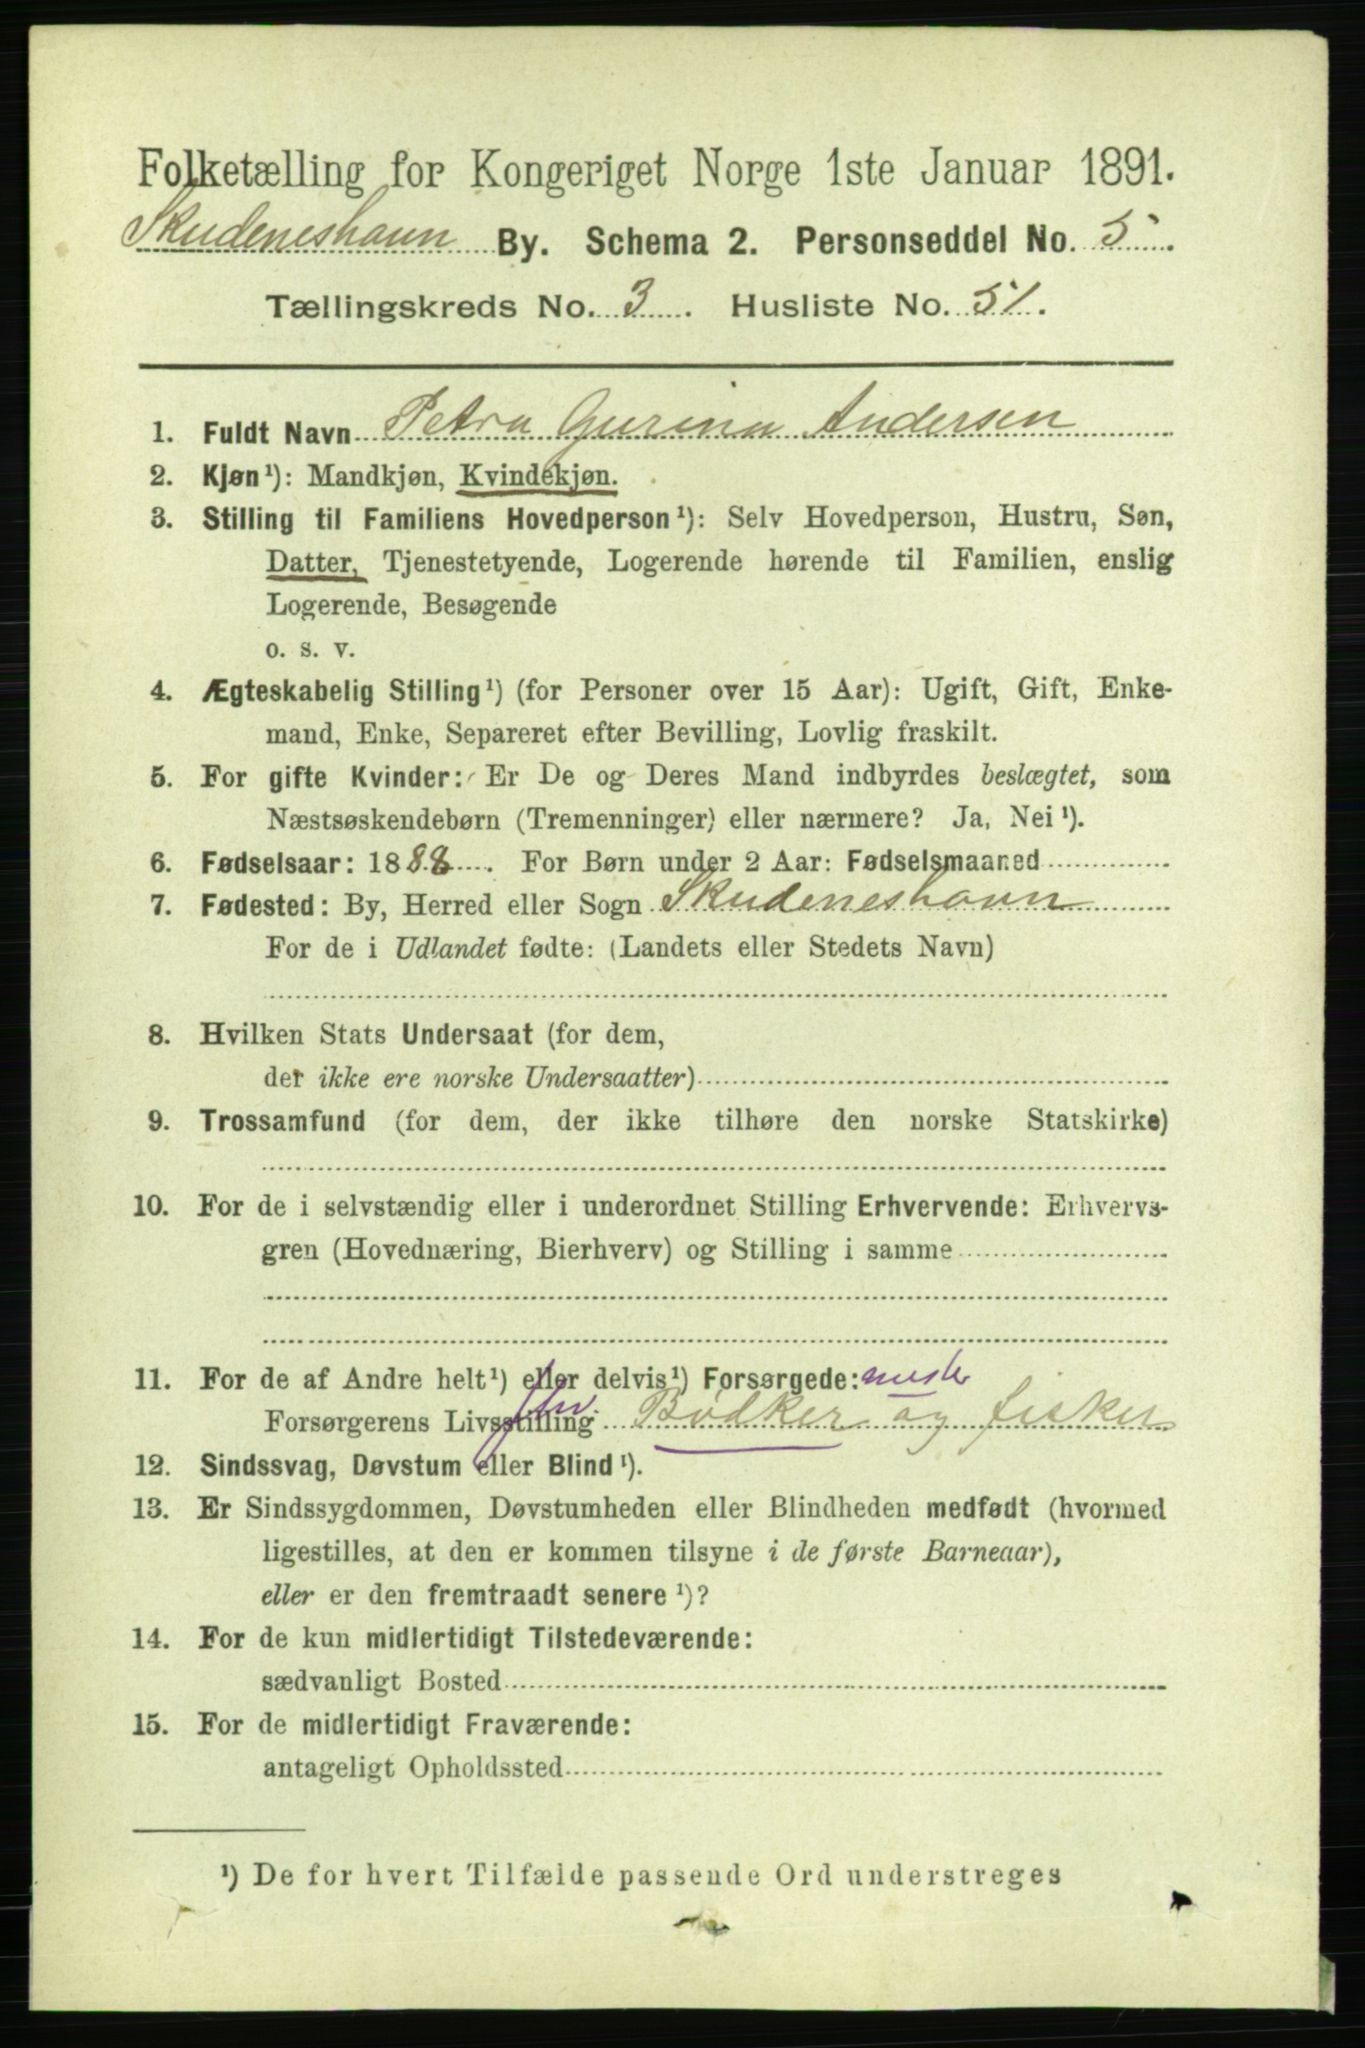 Folketælling for Kongeriget Norge 1ste Januar 1891.
Skudeneshavn By. Schema 2. Personseddel No. 5.
Tællingskreds No. 3. Husliste No. 51.
1. Fuldt Navn Petra Gurina Andersen
2. Kjøn¹): Mandkjøn, Kvindekjøn.
3. Stilling til Familiens Hovedperson¹): Selv Hovedperson, Hustru, Søn,
Datter, Tjenestetyende, Logerende hørende til Familien, enslig
Logerende, Besøgende
o. s. v.
4. Ægteskabelig Stilling¹) (for Personer over 15 Aar): Ugift, Gift, Enke-
mand, Enke, Separeret efter Bevilling, Lovlig fraskilt.
5. For gifte Kvinder: Er De og Deres Mand indbyrdes beslægtet, som
Næstsøskendebørn (Tremenninger) eller nærmere? Ja, Nei¹).
6. Fødselsaar: 1888. For Børn under 2 Aar: Fødselsmaaned
7. Fødested: By, Herred eller Sogn Skudeneshavn
For de i Udlandet fødte: (Landets eller Stedets Navn)
8. Hvilken Stats Undersaat (for dem,
der ikke ere norske Undersaatter)
9. Trossamfund (for dem, der ikke tilhøre den norske Statskirke)
10. For de i selvstændig eller i underordnet Stilling Erhvervende: Erhvervs-
gren (Hovednæring, Bierhverv) og Stilling i samme
11. For de af Andre helt¹) eller delvis¹) Forsørgede:
Forsørgerens Livsstilling Bødker og fisker
12. Sindssvag, Døvstum eller Blind¹).
13. Er Sindssygdommen, Døvstumheden eller Blindheden medfødt (hvormed
ligestilles, at den er kommen tilsyne i de første Barneaar),
eller er den fremtraadt senere¹)?
14. For de kun midlertidigt Tilstedeværende:
sædvanligt Bosted
15. For de midlertidigt Fraværende:
antageligt Opholdssted
¹) De for hvert Tilfælde passende Ord understreges